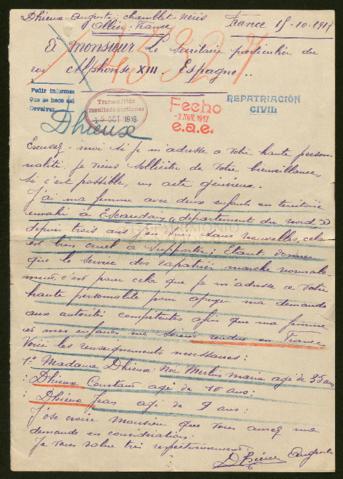 Dhieux Auguste chamblet-néris
Allier-France
France 15-10-1917
A monsieur le secrétaire particulier du
roi Alphonse XIII Espagne.
Pedir informes
que se hace del
Devolver
Dhieux
Transmitido
OCT 1916
Fecho
1917
e.a.e.
REPATRIACIÓN
CIVIL
Excusez-moi si je m'adresse a votre haute person
nalité, je viens solliciter de votre bienveillance
si c'est possible, un acte généreux.
J'ai ma femme avec deux enfants en territoire
envahi à Escaudain, département du nord
depuis trois ans sans nouvelles, cela
est bien cruel à supporter, Etant donné
que le service des rapatriés marche normale
ment c'est pour cela que je m'adresse a votre
haute personalité pour appuyer ma demande
aux autorité compétentes afin que ma femme
et mes enfants me soient rendus en France
Voici les renseignements nécessaires:
1° Madame Dhieux née Merlin marie agé de 35 ans
Dhieux Constant agé de 10 ans:
Dhieux agé de 9 ans:
J'ose croire monsieur que vous aurez ma
demande en considération:
Je vous salue très respectueusement
Dhieux Auguste